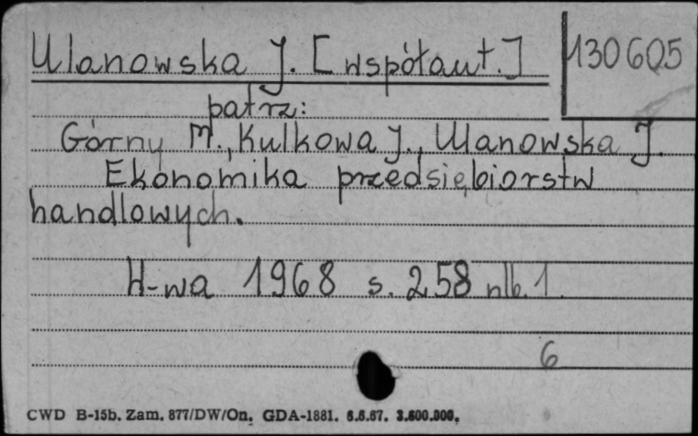 Ulanowska J. [współaut.]
130605
patrz:
Górny M., Kulkowa J., Ulanowska J.
Ekonomika przedsiębiorstw
handlowych.
W-wa 1968 s. 258 nlb. 1.
6
CWD B-15b. Zam. 877/DW/On. GDA-1881. 6.6.67. 3.600.000.